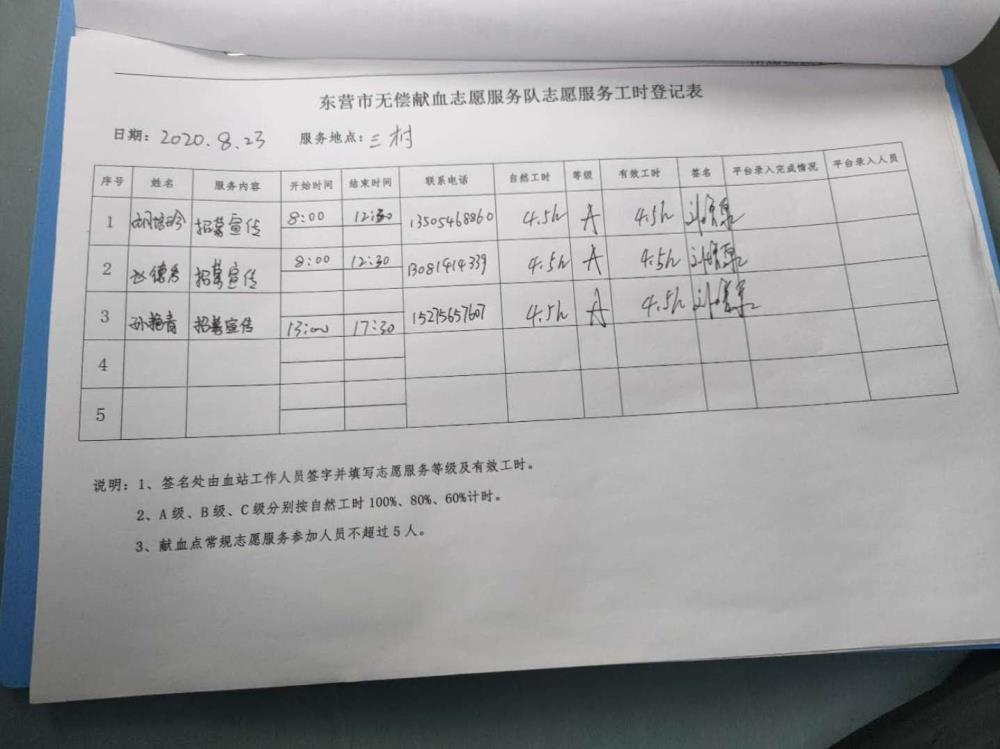 东营市无偿献血志愿服务队志愿服务工时登记表
日期：2020.8.23 服务地点：三村
序号 姓名 服务内容 开始时间 结束时间 联系电话 自然工时 等级 有效工时 签名 平台录入完成情况 平台录入人员
1 胡培玲 招募宣传 8:00 12:30 13505468860 4.5h A 4.5h
2 赵德秀 招募宣传 8:00 12:30 13081414339 4.5h A 4.5h
3 孙艳青 招募宣传 13:00 17:30 15275657607 4.5h A 4.5h
4
5
说明：1、签名处由血站工作人员签字并填写志愿服务等级及有效工时。
2、A 级、B 级、C 级分别按自然工时 100%、80%、60%计时。
3、献血点常规志愿服务参加人员不超过 5 人。